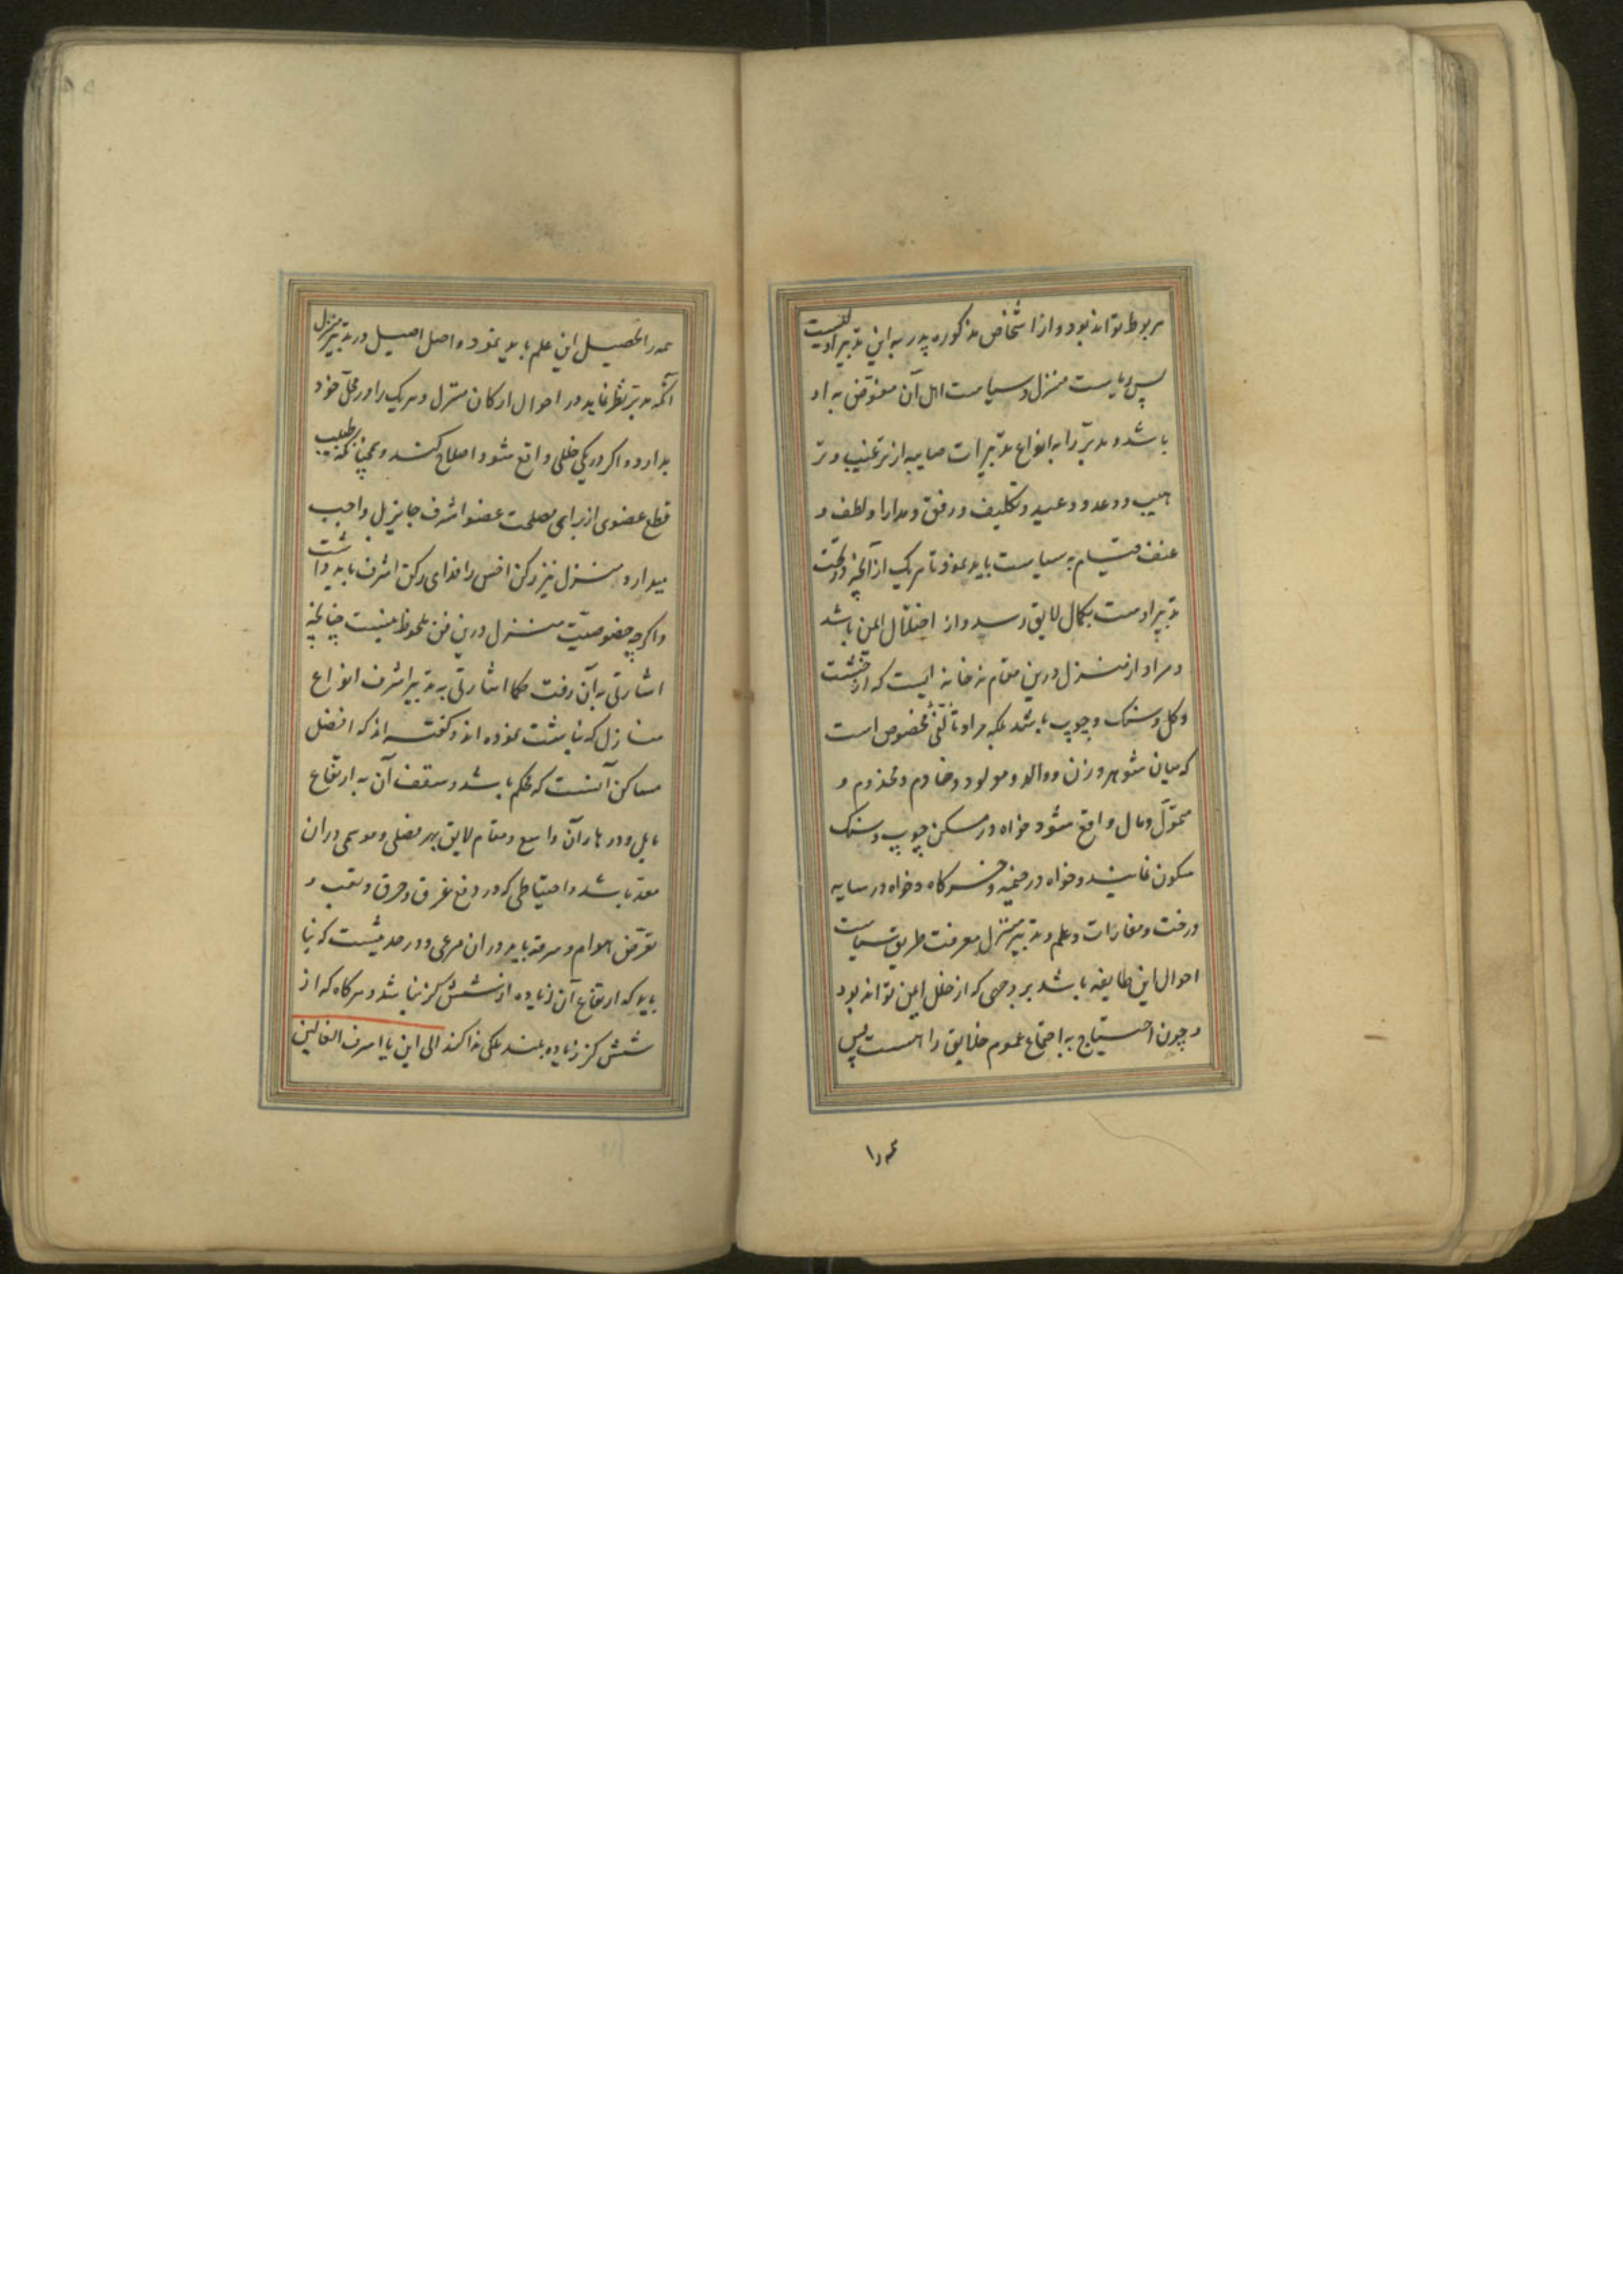 مربوط تواند بود و از اشخاص مذکوره پدر به این تدبیر اولیست
پس ریاست منزل و سیاست اهل آن مفوّض به او
باشد و مدبّر را به انواع تدبیرات صایبه از ترغیب و تر
هیب و وعد و وعید و تکلیف و رفق و مدارا و لطف و
عنف قیام به سیاست باید نمود تا هر یک از آنچه در تحت
تدبیر اوست بکمال لایق رسد و از اختلال ایمن باشد
و مراد از منزل درین مقام نه خانه ایست که از خشت
و گل و سنگ و چوب باشد بلکه مراد تألّفی مخصوص است
که میان شوهر و زن و والد و مولود و خادم و مخدوم و
متموّل و مال واقع شود خواه در مسکن چوب و سنگ
سکون نمایند و خواه در خیمه و خرگاه و خواه در سایه
درخت و مغارات و علم و تدبیر منزل معرفت طریق سیاست
احوال این طایفه باشد بر وجهی که از خلل ایمن تواند بود
و چون احتیاج به اجتماع عموم خلایق را هست پس
همه را
همه را تحصیل این علم باید نمود و اصل اصیل در تدبیر منزل
آنکه مدبّر نظر نماید در احوال ارکان منزل و هر یک را در محلّ خود
بدارد و اگر در یکی خللی واقع شود اصلاح کند و همچنانکه بر طبیب
قطع عضوی از برای مصلحت عضو اشرف جایز بل واجب
میدارد منزل نیز رکن اخس را فدای رکن اشرف باید داشت
و اگر چه خصوصیّت منزل درین فن ملحوظ نیست چنانچه
اشارتی به آن رفت حکما اشارتی به تدبیر اشرف انواع
منازل که نباشت نموده اند و گفته اند که افضل
مساکن آنست که محکم باشد و سقف آن به ارتفاع
مایل و درهای آن واسع و مقام لایق بهر فصلی و موسمی در آن
معدّ باشد و احتیاطی که در دفع غرق و حرق و نقب و
تعرّض هوام و سرقه باید در آن مرعی و در حدیثست که بنا
باید که ارتفاع آن زیاده از شش گز نباشد و هر گاه که از
شش گز زیاده بلند ملکی ندا کند الی این یا اسرف الغالین